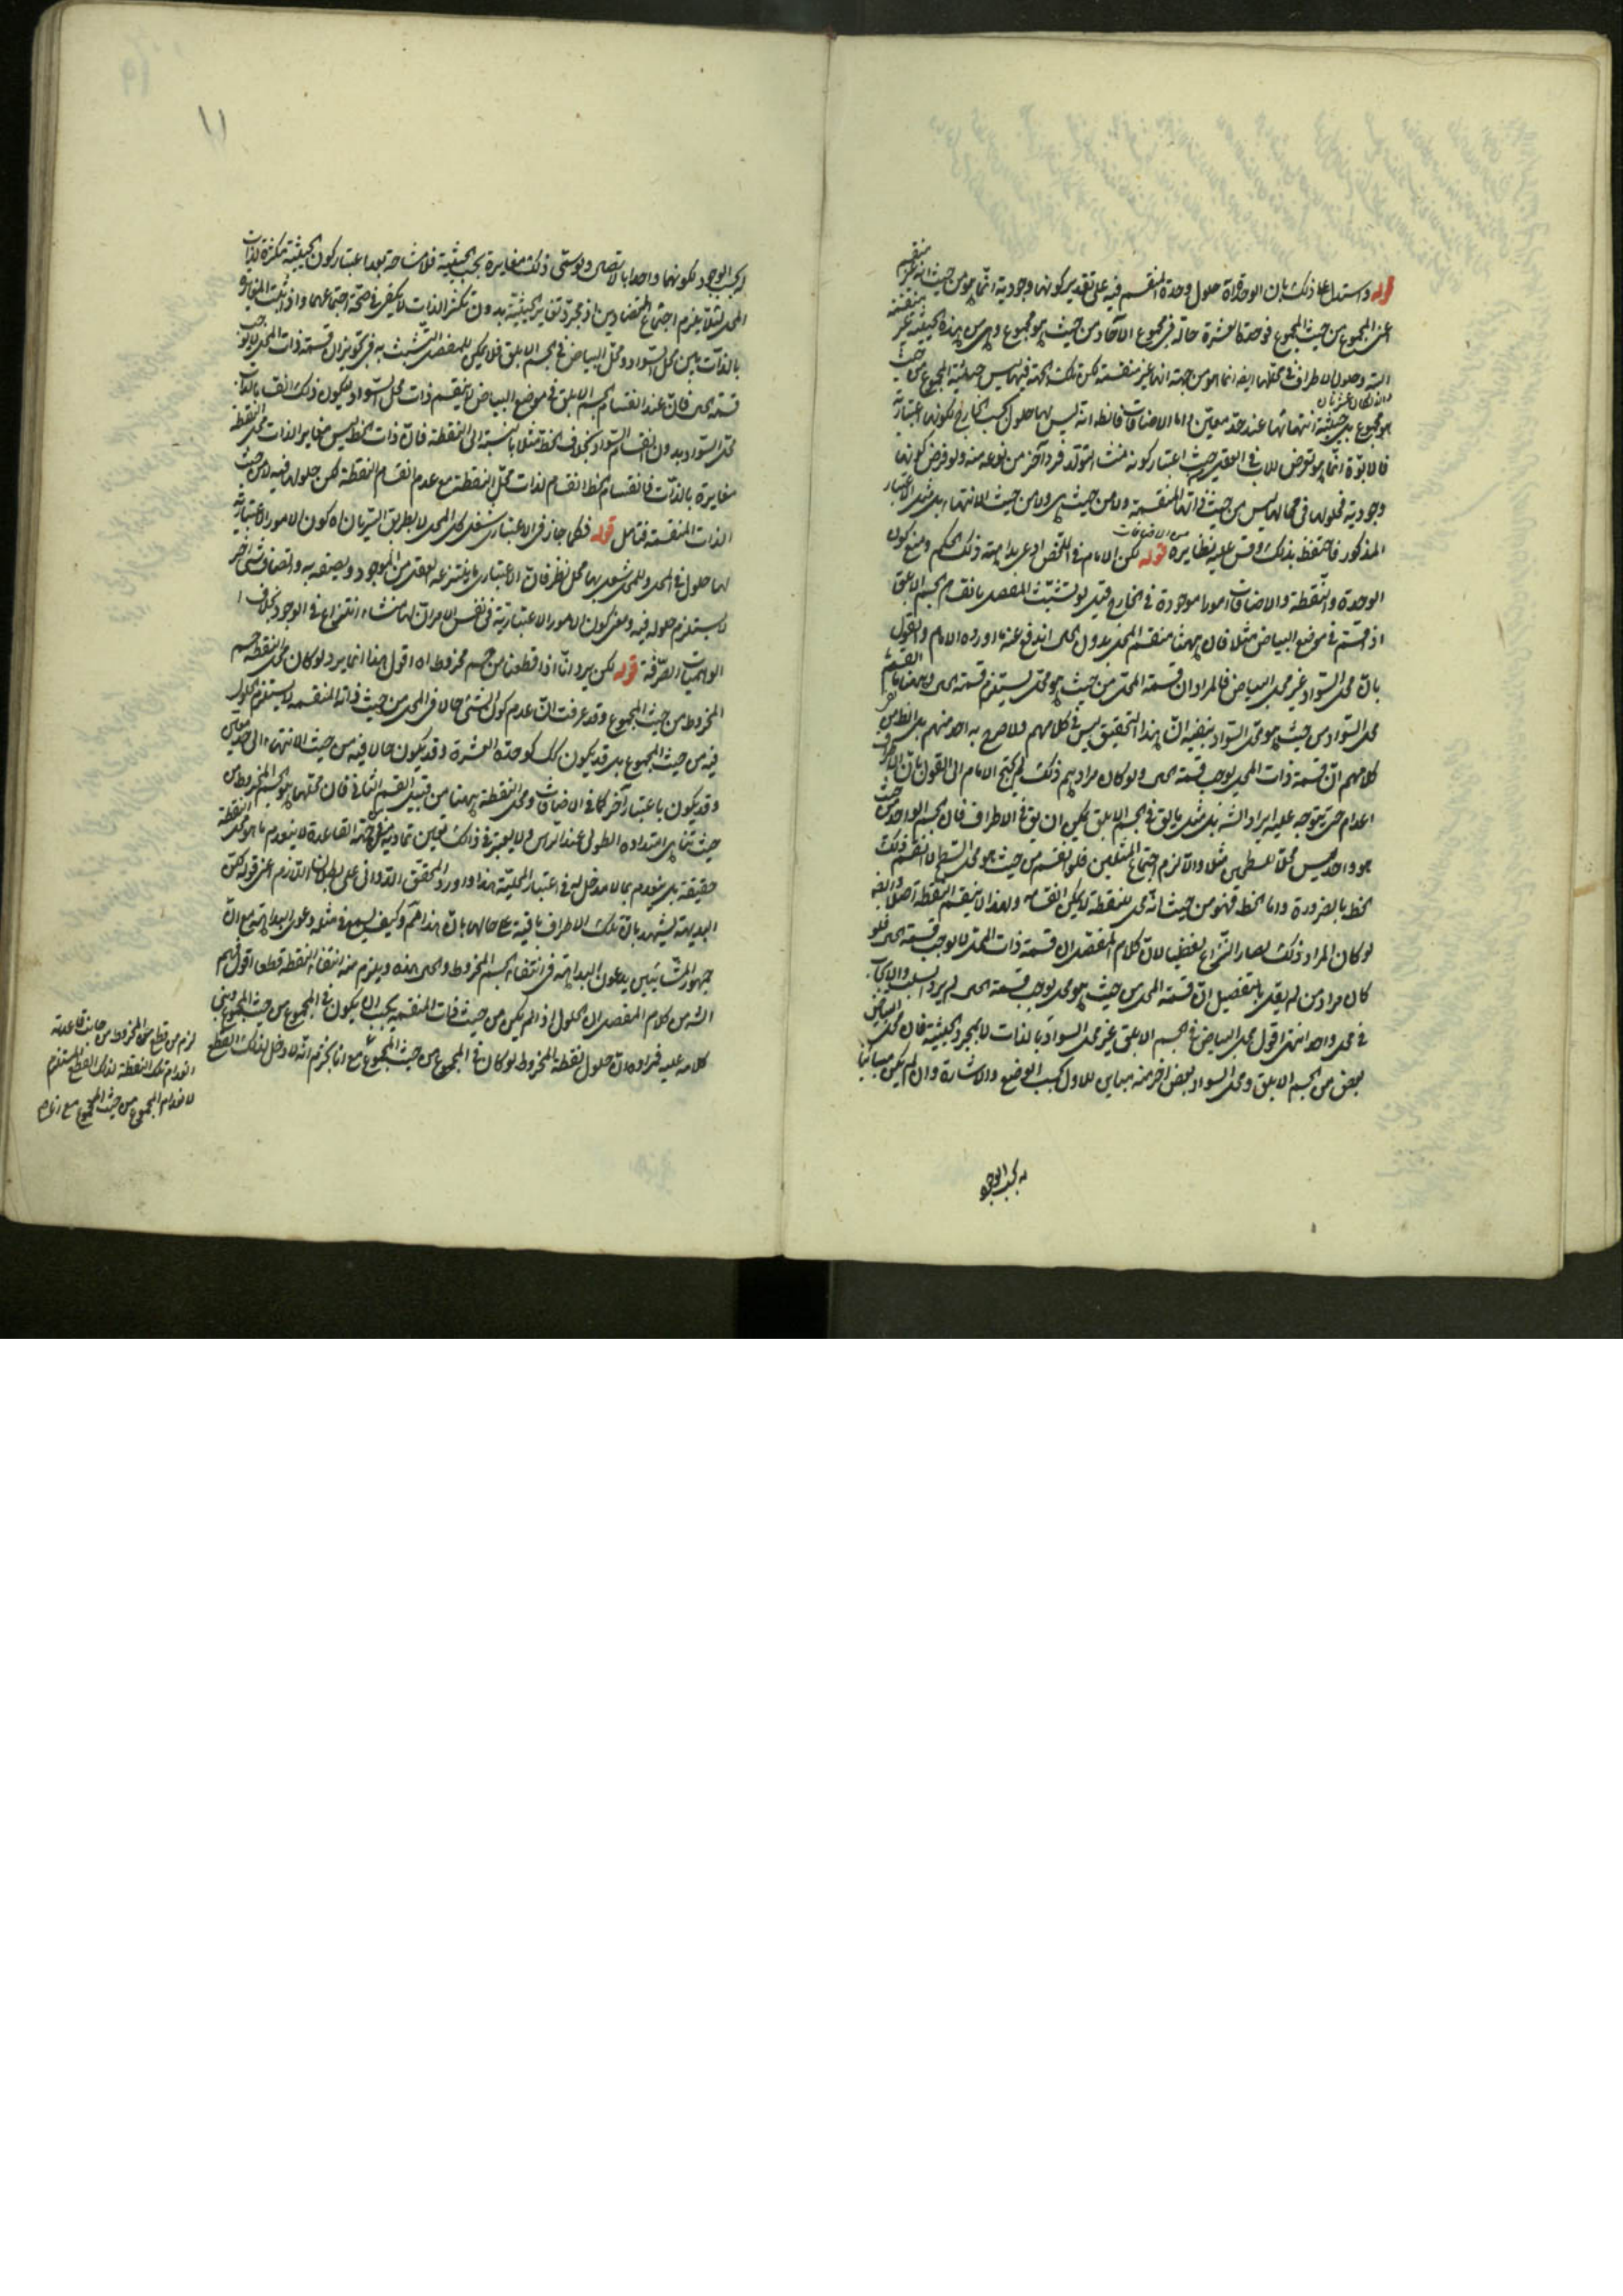 قوله واستدل على ذلك بان الوحدة اه حلول وحدة المنقسم فيه على تقدير كونها وجودية انما هو من حيث انه غير منقسم
اعنى المجموع من حيث المجموع فوحدة العشرة حالة فى مجموع الآحاد من حيث هو مجموع وهى من هذه الحيثية غير منقسمة
البتة وحلول الاطراف فى محلها ايضا انما هو من جهة انها غير منقسمة لكن تلك الجهة فيها ليس حيثية المجموع من حيث
هو مجموع بل حيثية انتهائها عند حد معين واما الاضافات فالظ انه ليس لها حلول بحسب الخارج لكونها اعتبارية
فالابوة انما هو تعرض للاب فى العقل من حيث اعتبار كونه منشأ لتولد فرد آخر من نوعه منه ولو فرض كونها
وجودية فحلولها فى محالها ليس من حيث ذاتها المنقسمة ولا من حيث هى ولا من حيث الانتهاء بل بمثل الاعتبار
المذكور فاحتفظ بذلك وقس عليه نظايره من الاضافات قوله لكن الامام فى الملخص ادعى بداهة ذلك الحكم ومنع كون
الوحدة والنقطة والاضافات امورا موجودة فى الخارج قيل لو تشبث المفصل بانقسام الجسم الابلق
اذ قسم فى موضع البياض مثلا فان ههنا منقسم المحل بدون الحال اندفع عنه ما اورده الامام والقول
بان محل السواد غير محل البياض فالمراد ان قسمة المحل من حيث هو محل يستلزم قسمة الحال وههنا ما انقسم
محل السواد من حيث هو محل السواد ينفيه ان هذا التحقيق ليس فى كلامهم ولا صرح به احد منهم بل الظ من
كلامهم ان قسمة ذات المحل يوجب قسمة الحال ولو كان مرادهم ذلك لم يحتج الامام الى القول بان الاطراف
اعدام حتى يتوجه عليه ايراد الشه بل مثل ما يق فى الجسم الابلق يمكن ان يق فى الاطراف فان الجسم الواحد من حيث
هو واحد ليس محلا للسطحين مثلا والا لزم اجتماع المثلين فلو انقسم من حيث هو محل السطح لانقسم ذلك
الخط بالضرورة واما الخط فهو من حيث انه محل للنقطة لا يمكن انقسامه ولهذا لا ينقسم النقطة اصلا وايضا
لو كان المراد ذلك لصار النزاع لفظيا لان كلام المفصل ان قسمة ذات المحل لا يوجب قسمة الحال فلو
كان مراد من لم يقل بالتفصيل ان قسمة المحل من حيث هو محل يوجب قسمة الحال لم يرد السلب والايجاب
فى محل واحد انتهى اقول محل البياض فى الجسم الابلق غير محل السواد بالذات لا بمجرد الحيثية فان محل البياض
بعض من الجسم الابلق ومحل السواد بعض آخر منه مباين للاول بحسب الوضع والاشارة وان لم يكن مباينا
له بحسب الوجو
له بحسب الوجود لكونهما واحدا بالاتصال ولو سمى ذلك مغايرة بحسب الحيثية فلا مشاحة بعد اعتبار كون الحيثية مكثرة لذات
المحل لئلا يلزم اجتماع المتضادين اذ مجرد تغاير الحيثية بدون تكثر الذات لا يكفى فى صحة اجتماعهما واذ ثبت المغايرة
بالذات بين محل السواد ومحل البياض فى الجسم الابلق فلا يمكن للمفصل التشبث به فى تجويز ان قسمة ذات المحل لا يوجب
قسمة الحال فان عند انقسام الجسم الابلق فى موضع البياض لا ينقسم ذات محل السواد ليكون ذلك انقساما بالذات
محل السواد بدون انقسام السواد بخلاف الخط مثلا بالنسبة الى النقطة فان ذات الخط ليس مغاير الذات محل النقطة
مغايرة بالذات فانقسام الخط انقسام لذات محل النقطة مع عدم انقسام النقطة لكن حلولها فيه لا من حيث
الذات المنقسمة فتامل قوله فكما جاز فى الاعتبارى شغل كل المحل لا بطريق السريان اه كون الامور الاعتبارية
لها حلول فى المحل وللمحل شغل بها محل نظر فان الاعتبارى ما ينتزعه العقل من الموجود ويصفه به واتصاف شئ بآخر
لا يستلزم حلوله فيه ومعنى كون الامور الاعتبارية فى نفس الامر ان لها منشاء انتزاع فى الوجود بخلاف ا
لوهميات الصرفة قوله لكن يرد انا اذا قطعنا من جسم مخروط اه اقول هذا انما يرد لو كان محل النقطة جسم
المخروط من حيث المجموع وقد عرفت ان عدم كون الشئ حالا فى المحل من حيث ذاته المنقسمة لا يستلزم الحلول
فيه من حيث المجموع بل قد يكون كك كوحدة العشرة وقد يكون حالا فيه من حيث الانتهاء الى حد معين
وقد يكون باعتبار آخر كما فى الاضافات ومحل النقطة ههنا من قبيل القسم الثانى فان محلها هو الجسم المخروط من
حيث تناهى امتداده الطولى عند الرأس ولا يعتبر فى ذلك تعين تماديه من جهة القاعدة لا ينعدم ما هو محل النقطة
حقيقة بل ينعدم بما لا مدخل له فى اعتبار المحلية هذا واورد المحقق الدوانى على بطلان اللازم اعنى قوله لكن
البديهة يشهد بان تلك الاطراف باقية على حالها بان هذا حكم وكيف يسمع فى مثله دعوى البداهة مع ان
جمهور المشائيين يدعون البداهة فى انتفاء الجسم المخروط والحال هذه ويلزم منه انتفاء النقطة قطعا اقول فهم
الشه من كلام المفصل ان الحلول اذا لم يكن من حيث ذات المنقسمة يجب ان يكون فى المجموع من حيث المجموع وبنى
كلامه عليه فمراده ان حلول نقطة المخروط لو كان فى المجموع من حيث المجموع مع انا نجزم انه لا دخل لذلك القطع
لزم من قطع المخروط من جانب قاعدته
انعدام تلك النقطة لذلك القطع المستلزم
لانعدام المجموع من حيث المجموع مع
١١